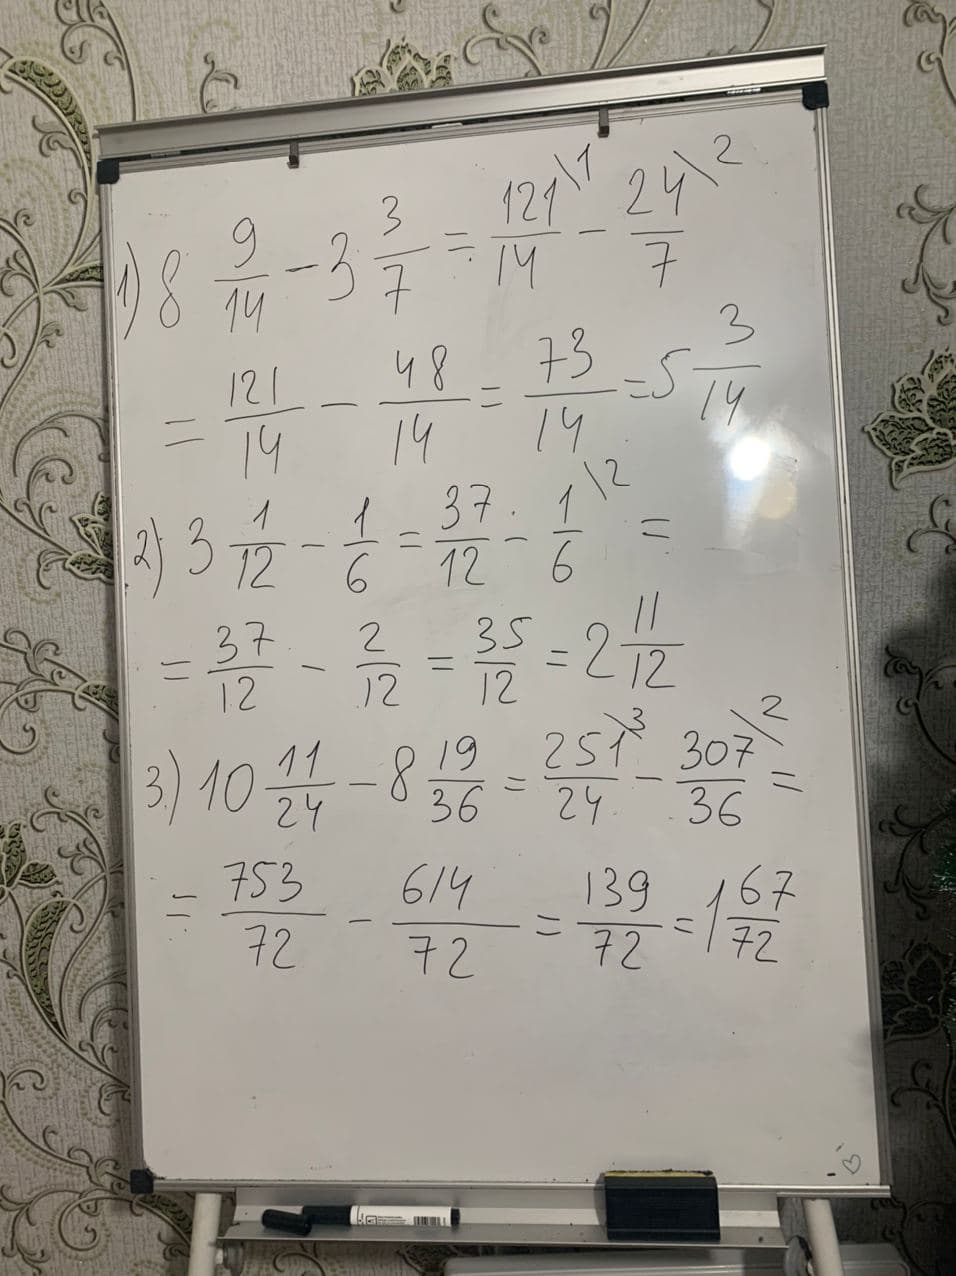 1) 8 9/14 - 3 3/7 = 121/14 \1 - 24/7 \2
= 121/14 - 48/14 = 73/14 = 5 3/14
2) 3 1/12 - 1/6 = 37/12 - 1/6 \2 =
= 37/12 - 2/12 = 35/12 = 2 11/12
3.) 10 11/24 - 8 19/36 = 251/24 \3 - 307/36 \2 =
= 753/72 - 614/72 = 139/72 = 1 67/72